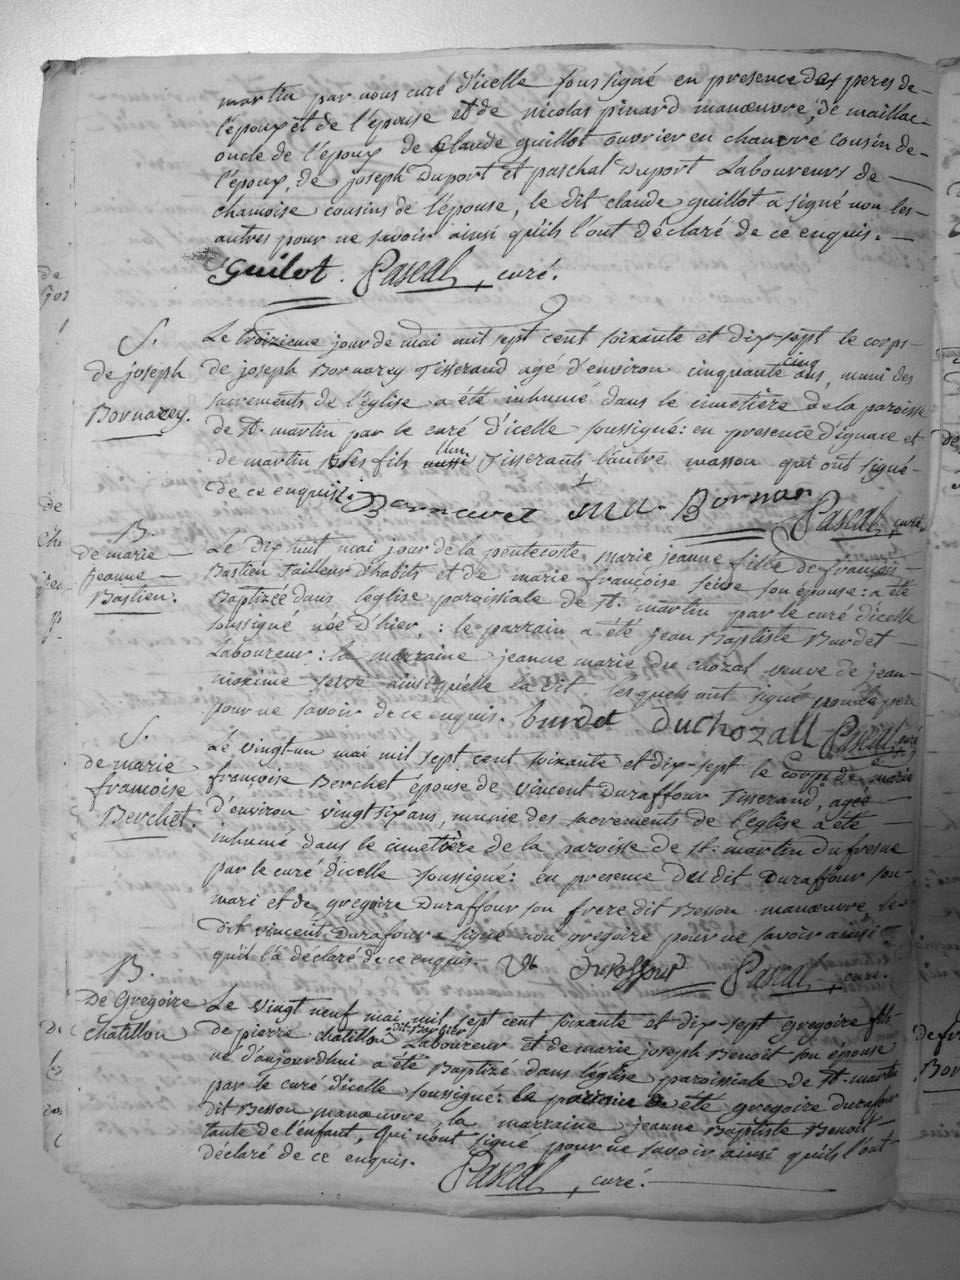 martin par nous curé d'icelle soussigné en presence des peres de-
l'epoux et de l'epouse et de nicolas pinard manœuvre, de maillac-
oncle de l'epoux de Claude guillot ouvrier en chanvre cousin de-
l'epoux, de joseph Duport et paschal Duport Laboureurs de
chamoise cousins de l'epouse, le dit claude guillot a signé non les-
autres pour ne savoir ainsi qu'ils l'ont déclaré de ce enquis.
Guilot. Pascal, curé.
S.
de joseph
Bornarey.
Le troizieme jour de mai mil sept cent soixante et dix-sept le corps-
de joseph Bornarey Tisserand agé d'environ cinquante cinq ans, muni des
sacrements de l'église a été inhumé dans le cimetiere de la paroisse
de st. martin par le curé d'icelle soussigné: en presence d'ignace et
de martin ses fils l'un Tisserants l'autre masson qui ont signé
de ce enquis.
Pascal, curé.
B.
de marie
jeanne
Bastien.
Le dix huit mai jour de la pentecoste, marie jeanne fille de françois
Bastien Tailleur d'habits et de marie françoise seive son épouse: a été
Baptizée dans l'église paroissiale de st. martin par le curé d'icelle
soussigné née d'hier: le parrain a été jean Baptiste Burdet
Laboureur: la marraine jeanne marie du chozal veuve de jean-
seive ainsi qu'elle la dit. lesquels ont signé le pere
pour ne savoir de ce enquis. burdet duchozall Pascal curé
S.
de marie
françoise
Berchet.
Le vingt-un mai mil sept cent soixante et dix-sept le corps de marie
françoise Berchet épouse de vincent Duraffour Tisserand, agée
d'environ vingt six ans, munie des sacrements de l'eglise a été
inhumé dans le cimetière de la paroisse de st: martin du fresne
par le curé d'icelle soussigné: en presence du dit Duraffour son
mari et de gregoire Duraffour son frere dit Besson manœuvre le
dit vincent Duraffour a signé non gregoire pour ne savoir ainsi
qu'il l'a déclaré de ce enquis. Pascal, curé.
B.
De Gregoire
chatillon
Le vingt neuf mai mil sept cent soixante et dix-sept gregoire fils
de pierre chatillon Laboureur et de marie joseph Benoit son épouse
né d'aujourdhui a été Baptizé dans l'église paroissiale de st. martin
par le curé d'icelle soussigné: le parrain a été gregoire duraffour
dit Besson manœuvre, la marraine jeanne Baptiste Benoit
tante de l'enfant, qui n'ont signé pour ne savoir ainsi qu'ils l'ont
déclaré de ce enquis.
Pascal, curé.